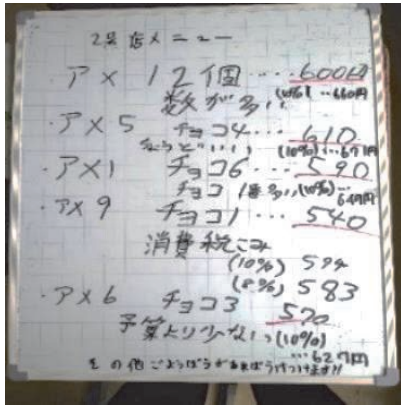 2号店メニュー
・アメ12個‥‥600円
数が多い (10%)‥660円
・アメ5 チョコ4‥‥610
ちょうどいい (10%)‥671円
・アメ1 チョコ6‥‥590
チョコ1番多い(10%)‥649円
・アメ9 チョコ1‥‥540
消費税こみ
(10%) 594
(8%) 583
・アメ6 チョコ3 570
予算より少ない (10%)
‥627円
その他ごようぼうがあればうけつけます!!